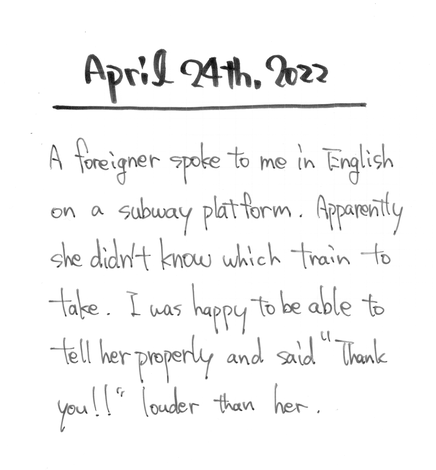 April 24th, 2022
A foreigner spoke to me in English
on a subway platform. Apparently
she didn't know which train to
take. I was happy to be able to
tell her properly and said "Thank
you!!" louder than her.